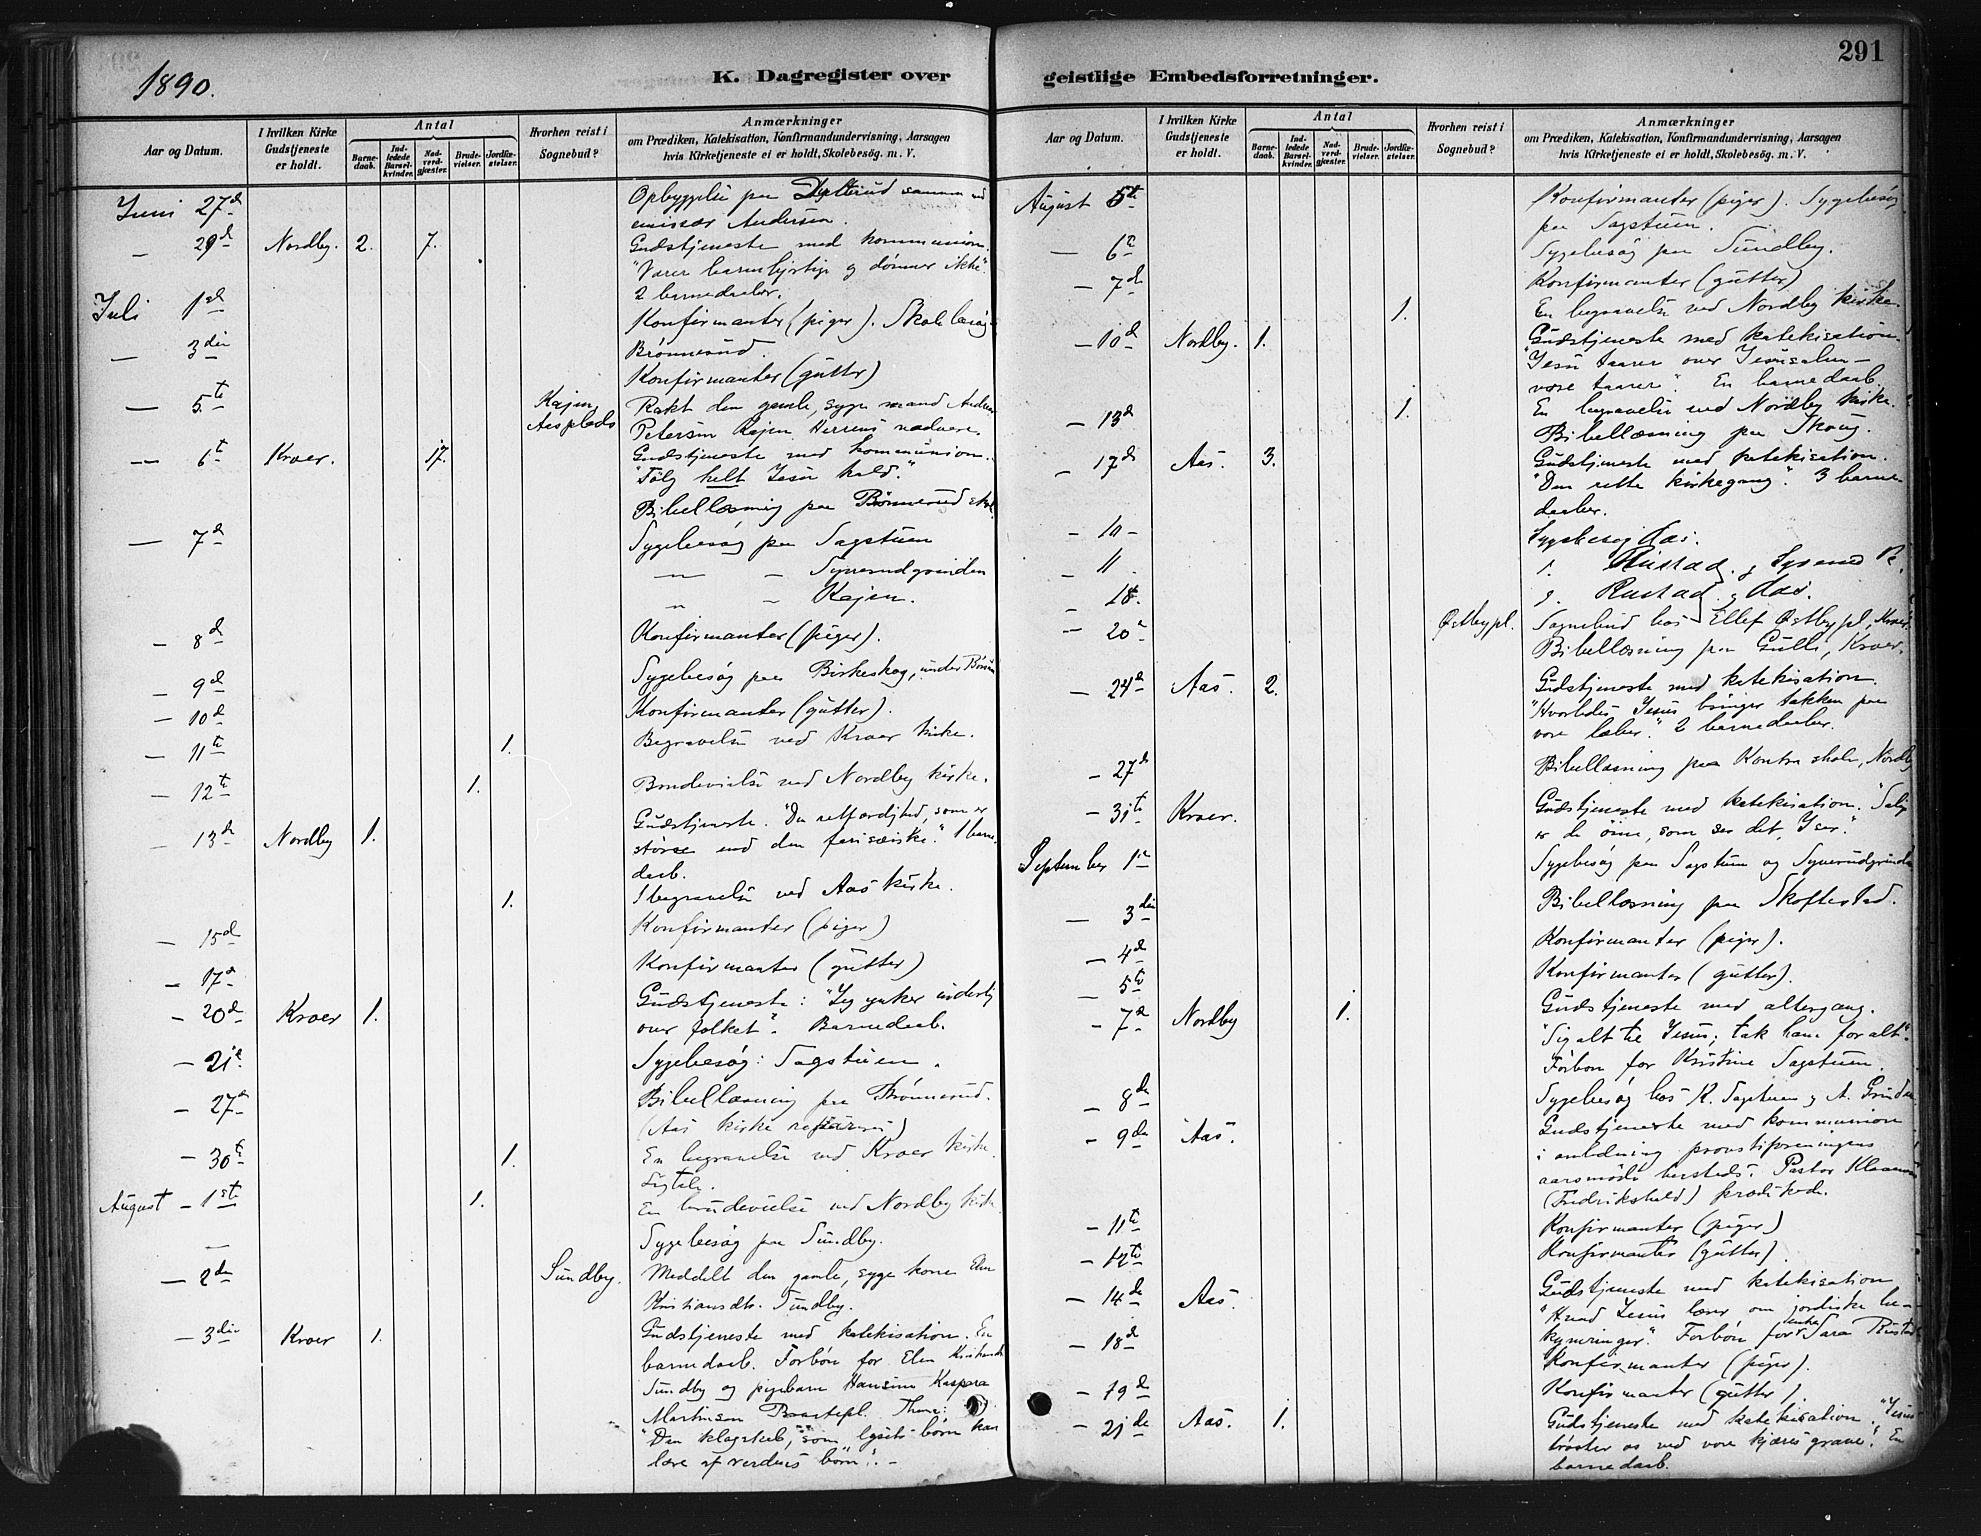 291
1890.
K. Dagregister over geistlige Embedsforretninger.
Aar og Datum.
I hvilken Kirke Gudstjeneste er holdt.
Antal
Barnedaab.
Indledede Barselkvinder.
Nadverdgjæster.
Brudevielser.
Jordfæstelser.
Hvorhen reist i Sognebud?
Anmærkninger
om Prædiken, Katekisation, Konfirmandundervisning, Aarsagen
hvis Kirketjeneste ei er holdt, Skolebesøg. m. V.
Juni 27de Opbyggelse paa sammen med
emissær Andersen.
– 29de Nordby. 2. 7. Gudstjeneste med kommunion.
"Værer barmhjertige og dømmer ikke".
2 barnedaaber.
Juli 1ste Konfirmanter (piger). Skolebesøg
Brønnerud.
– 3die Konfirmanter (gutter)
– 5te Kajen, Aasplads Rakt den gamle, syge mand Anders
Petersen Kajen Herrens nadvere.
– 6te Kroer. 17. Gudstjeneste med kommunion.
"Følg helt Jesu kald."
Bibellæsning paa Brønnerud skole.
– 7de Sygebesøg paa Sagstuen
– " – – Synerudgrinden
" – Kajen.
– 8de Konfirmanter (piger).
– 9de Sygebesøg paa Birkeskog, under
– 10de Konfirmanter (gutter).
– 11te 1. Begravelse ved Kroer kirke.
– 12te 1. Brudevielse ved Nordby kirke.
– 13de Nordby 1. Gudstjeneste. "Den retfærdighed, som er
større end den farisæiske." 1 barne-
daab.
1. 1 begravelse ved Aas kirke.
– 15de Konfirmanter (piger)
– 17de Konfirmanter (gutter)
– 20de Kroer 1. Gudstjeneste: "Jeg ynker inderlig
over folket". Barnedaab.
– 21de Sygebesøg: Sagstuen.
– 27de Bibellæsning paa Brønnerud.
(Aas kirke )
– 30te 1. En begravelse ved Kroer kirke.
August – 1ste 1. En brudevielse ved Nordby kirke
– Sygebesøg paa Sundby.
– 2den Sundby. Meddelt den gamle, syge kone Elen
Kristiansdtr. Sundby.
– 3die Kroer 1. Gudstjeneste med katekisation. En
barnedaab. Forbøn for Elen Kristiansdtr
Sundby og pigebarn Hansine Kaspara
Martinsen Thema:
"Den klogskab, som lysets børn kan
lære af verdens børn". –
Aar og Datum.
I hvilken Kirke Gudstjeneste er holdt.
Antal
Barnedaab.
Indledede Barselkvinder.
Nadverdgjæster.
Brudevielser.
Jordfæstelser.
Hvorhen reist i Sognebud?
Anmærkninger
om Prædiken, Katekisation, Konfirmandundervisning, Aarsagen
hvis Kirketjeneste ei er holdt, Skolebesøg. m. V.
August 5te Konfirmanter (piger). Sygebesøg
paa Sagstuen.
– 6te Sygebesøg paa Sundby.
– 7de Konfirmanter (gutter)
1. En begravelse ved Nordby kirke.
– 10de Nordby. 1. Gudstjeneste med katekisation.
"Jesu taarer over Jerusalem –
vore taarer". En barnedaab.
1. En begravelse ved Nordby kirke.
– 13de Bibellæsning paa Skoug.
– 17de Aas. 3. Gudstjeneste med katekisation.
"Den rette kirkegang". 3 barne-
daaber.
– 10 – Sygebesøg Aas.
– 11 Rustad
– 18. Rustad, Aas.
– 20de Østbypl. Sognebud hos Ellef Østbypl, Kroer.
Bibellæsning paa Gulli, Kroer.
– 24de Aas. 2. Gudstjeneste med katekisation.
"Hvorledes Jesus bringer takken paa
vore læber." 2 barnedaaber.
– 27de Bibellæsning paa Kontra skole, Nordby
– 31te Kroer. Gudstjeneste med katekisation. "Salige
er de øine, som ser det, I ser."
September 1ste Sygebesøg paa Sagstuen og Synerudgrinden
– 3die Bibellæsning paa Skoftestad.
– 4de Konfirmanter (piger).
– 5te Konfirmanter (gutter).
– 7de Nordby 1. Gudstjeneste med altergang.
"Sig alt til Jesus; tak ham for alt".
Forbøn for Kristine Sagstuen.
– 8de Sygebesøg hos K. Sagstuen og A. Grinden
– 9de Aas. Gudstjeneste med kommunion
i anledning provstiforeningens
aarsmøde hersteds. Pastor
(Fredrikshald) prædikede.
– 11te Konfirmanter (piger)
– 12te Konfirmanter (gutter).
– 14de Aas. Gudstjeneste med katekisation
"Hvad Jesus lærer om jordiske be-
kymringer." Forbøn for enke Sara Rustad
– 18de Konfirmanter (piger).
– 19de Konfirmanter (gutter).
– 21de Aas. 1. Gudstjeneste med katekisation. "Jesus
trøster os ved vore kjæres grave". En
barnedaab.